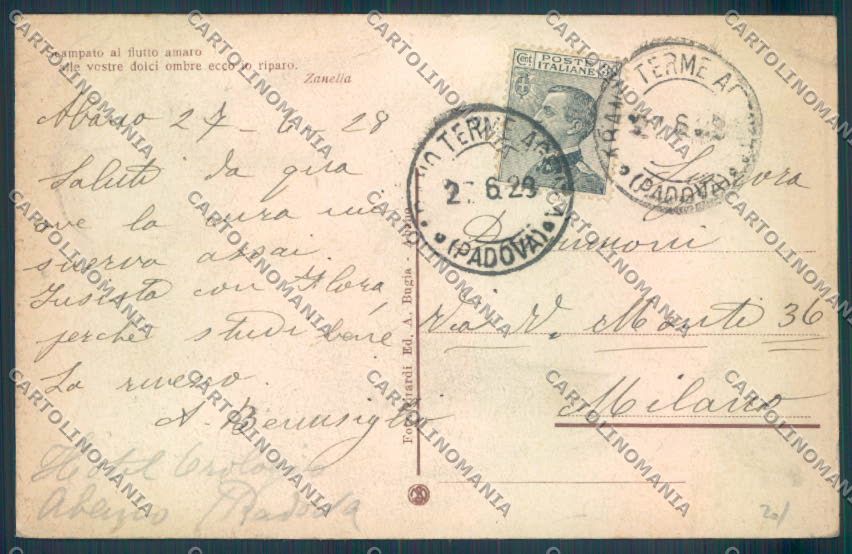 Scampato al flutto amaro
alle vostre dolci ombre ecco io riparo.
Zanella
Abano 27-6-28
Saluti da qua
ove la cura mi
snerva assai.
Insista con Flora
perchè studi bene
La riverso.
A. Benusiglio
Hotel Orologio
Abano Padova
Fot. Ed. A. Bugia
Cent POSTE
ITALIANE
TERME
6.28
(PADOVA)
TERME
6.28
(PADOVA)
Signora
Via V. Monti 36
Milano
20/
CARTOLINOMANIA